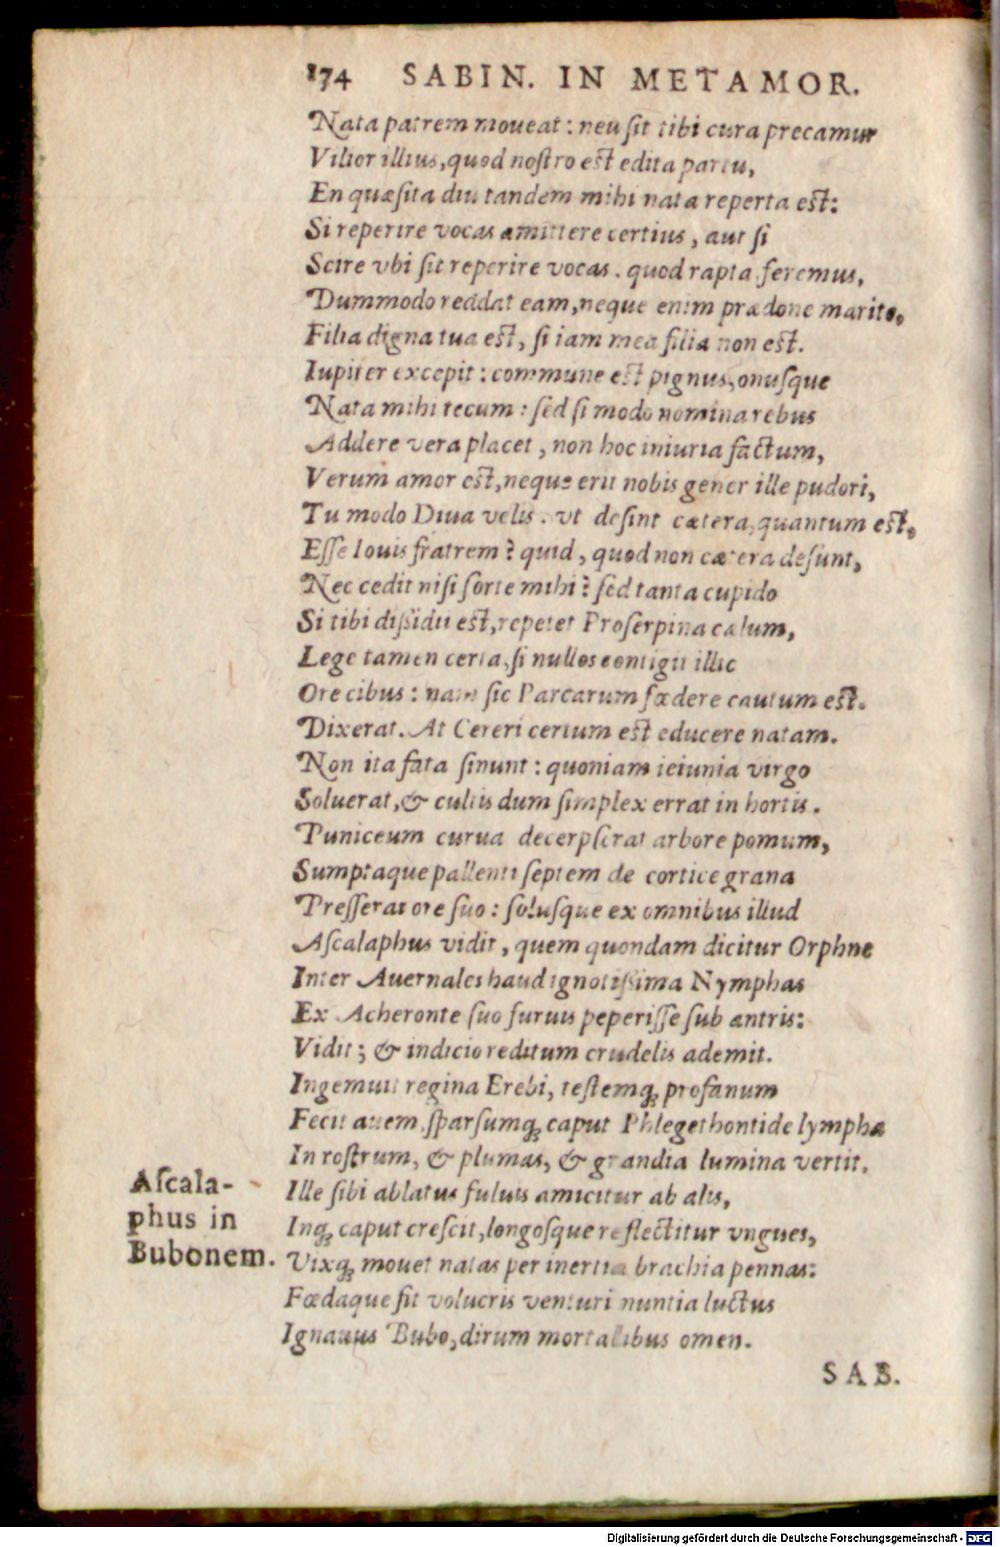 174 SABIN. IN METAMOR.
Nata patrem moueat: neu ſit tibi cura precamur
Vilior illius, quod noſtro eſt edita partu,
En quæſita diu tandem mihi nata reperta eſt:
Si reperire vocas amittere certius, aut ſi
Scire vbi ſit reperire vocas. quod rapta feremus,
Dummodo reddat eam, neque enim prædone marito,
Filia digna tua eſt, ſi iam mea filia non eſt.
Iupiter excepit: commune eſt pignus, onuſque
Nata mihi tecum: ſed ſi modo nomina rebus
Addere vera placet, non hoc iniuria factum,
Verum amor eſt, neque erit nobis gener ille pudori,
Tu modo Diua velis. vt deſint cætera, quantum eſt,
Eſſe Iouis fratrem? quid, quod non cætera deſunt,
Nec cedit niſi ſorte mihi? ſed tanta cupido
Si tibi diſsidii eſt, repetet Proſerpina cælum,
Lege tamen certa, ſi nullos contigit illic
Ore cibus: nam ſic Parcarum fœdere cautum eſt.
Dixerat. At Cereri certum eſt educere natam.
Non ita fata ſinunt: quoniam ieiunia virgo
Soluerat, & cultis dum ſimplex errat in hortis.
Puniceum curua decerpſerat arbore pomum,
Sumptaque pallenti ſeptem de cortice grana
Preſſerat ore ſuo: ſoluſque ex omnibus illud
Aſcalaphus vidit, quem quondam dicitur Orphne
Inter Auernales haud ignotiſsima Nymphas
Ex Acheronte ſuo furuis peperiſſe ſub antris:
Vidit; & indicio reditum crudelis ademit.
Ingemuit regina Erebi, teſtemq́; profanum
Fecit auem, ſparſumq́; caput Phlegethontide lympha
In roſtrum, & plumas, & grandia lumina vertit.
Aſcala-
phus in
Bubonem.
Ille ſibi ablatus fuluis amicitur ab alis,
Inq́; caput creſcit, longoſque reflectitur vngues,
Vixq́; mouet natas per inertia brachia pennas:
Fœdaque fit volucris venturi nuntia luctus
Ignauus Bubo, dirum mortalibus omen.
SAB.
Digitalisierung gefördert durch die Deutsche Forschungsgemeinschaft - DFG